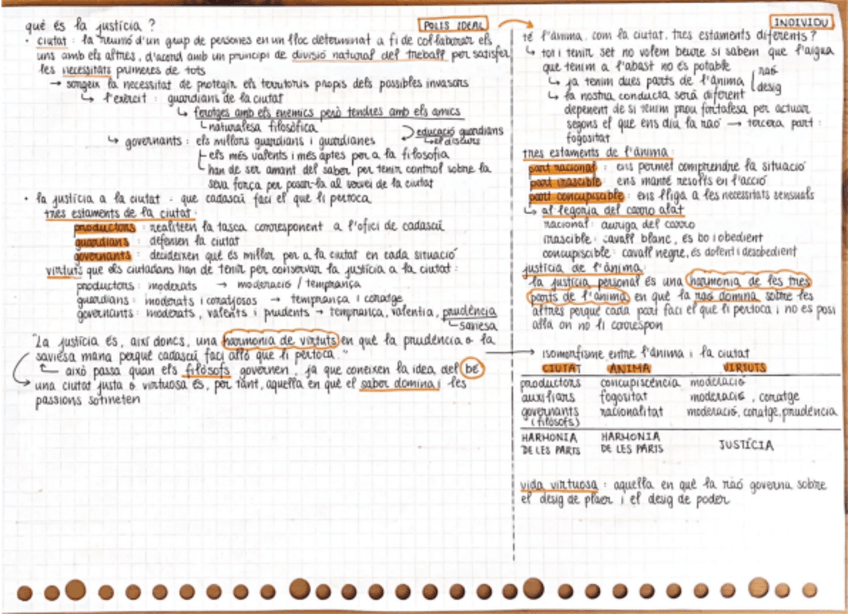 què és la justícia ?
POLIS IDEAL
· ciutat : la reunió d'un grup de persones en un lloc determinat a fi de col·laborar els
uns amb els altres, d'acord amb un principi de divisió natural del treball per satisfer
les necessitats primeres de tots
→ sorgeix la necessitat de protegir els territoris propis dels possibles invasors
↳ l'exèrcit : guardians de la ciutat
↳ ferotges amb els enemics però tendres amb els amics
naturalesa filosòfica
educació guardians
el discurs
↳ governants : els millors guardians i guardianes
els més valents i més aptes per a la filosofia
han de ser amant del saber per tenir control sobre la
seva força per posar-la al servei de la ciutat
· la justícia a la ciutat : que cadascú faci el que li pertoca
tres estaments de la ciutat :
productors : realitzen la tasca corresponent a l'ofici de cadascú
guardians : defensen la ciutat
governants : decideixen què és millor per a la ciutat en cada situació
virtuts que els ciutadans han de tenir per conservar la justícia a la ciutat :
productors : moderats → moderació / temprança
guardians : moderats i coratjosos → temprança i coratge
governants : moderats, valents i prudents → temprança, valentia, prudència
saviesa
"La justícia és, així doncs, una harmonia de virtuts en què la prudència o la
saviesa mana perquè cadascú faci allò que li pertoca."
això passa quan els filòsofs governen, ja que coneixen la idea del bé
→ una ciutat justa o virtuosa és, per tant, aquella en què el saber domina i les
passions sotmeten
INDIVIDU
té l'ànima, com la ciutat, tres estaments diferents ?
↳ tot i tenir set no volem beure si sabem que l'aigua
que tenim a l'abast no és potable
↳ ja tenim dues parts de l'ànima
raó
desig
↳ la nostra conducta serà diferent
depenent de si tenim prou fortalesa per actuar
segons el que ens diu la raó → tercera part :
fogositat
tres estaments de l'ànima :
part racional : ens permet comprendre la situació
part irascible : ens manté resolts en l'acció
part concupiscible : ens lliga a les necessitats sensuals
↳ al·legoria del carro alat
racional : auriga del carro
irascible : cavall blanc, és bo i obedient
concupiscible : cavall negre, és dolent i desobedient
justícia de l'ànima :
la justícia personal és una harmonia de les tres
parts de l'ànima en què la raó domina sobre les
altres perquè cada part faci el que li pertoca i no es posi
allà on no li correspon
→ isomorfisme entre l'ànima i la ciutat
CIUTAT ÀNIMA VIRTUTS
productors concupiscència moderació
auxiliars fogositat moderació, coratge
governants racionalitat moderació, coratge, prudència
(filòsofs)
HARMONIA HARMONIA JUSTÍCIA
DE LES PARTS DE LES PARTS
vida virtuosa : aquella en què la raó governa sobre
el desig de plaer i el desig de poder